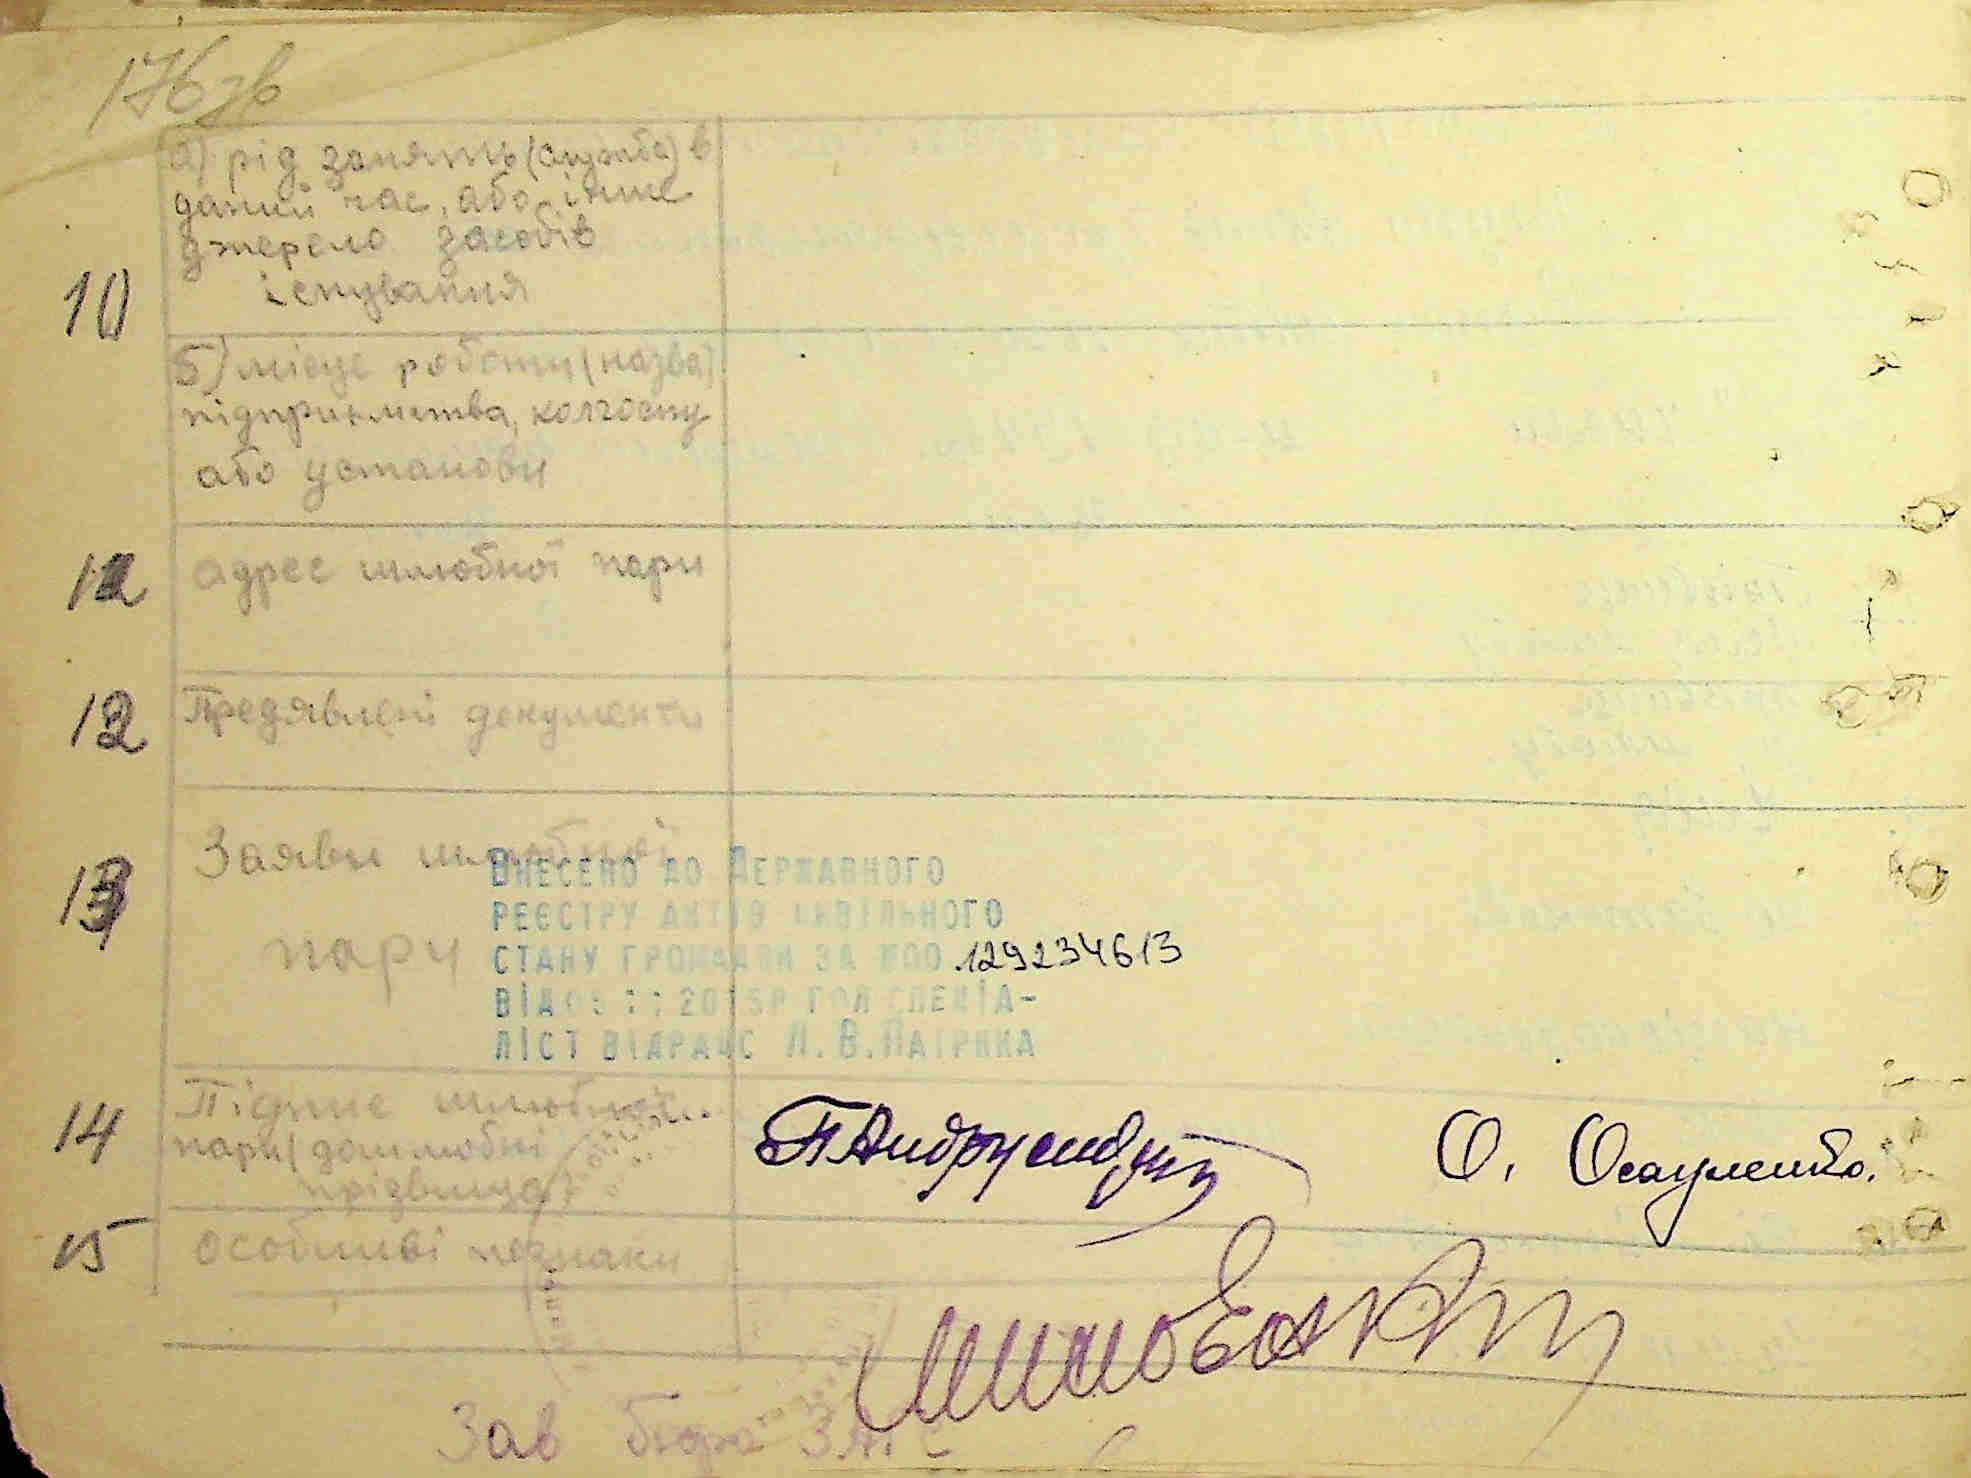 176 зв
а) рід занять (служба) в
даний час, або інше
джерело засобів
існування
10
б) місце роботи (назва)
підприємства, колгоспу
або установи
12 адрес шлюбної пари
12 Предявлені документи
13 Заяви шлюбної
пари
ВНЕСЕНО ДО ДЕРЖАВНОГО
РЕЄСТРУ АКТІВ ЦИВІЛЬНОГО
СТАНУ ГРОМАДЯН ЗА №00 129234613
ВІД 2015Р ГОЛ СПЕЦІА-
ЛІСТ ВІДРАЦС Л.В.
14 Підпис шлюбної
пари (дошлюбні
прізвища)
О. Осауленко.
15 особливі познаки
Зав бюра ЗАГС